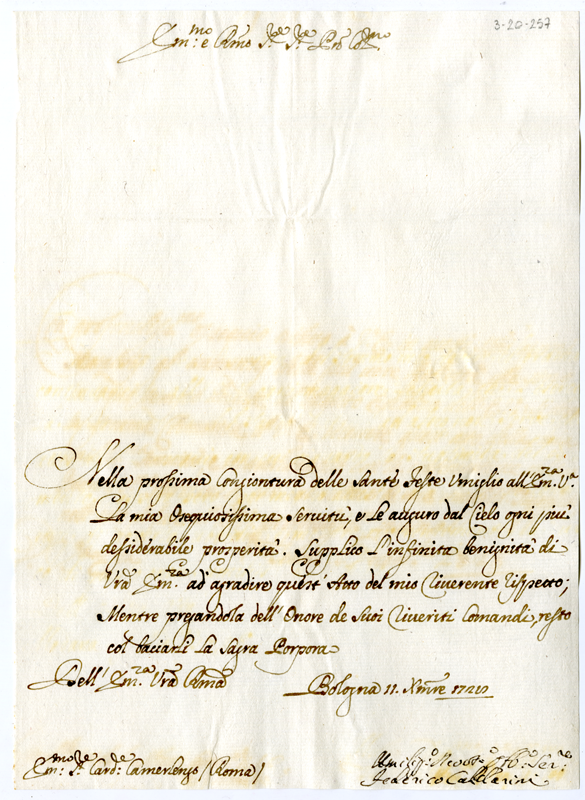 3-20-257
Em:mo e Rmo Sre Sre Prõn Colmo
Nella prossima Congiontura delle Sante Feste Umiglio all' Em:za Va
La mia Osequiosissima Servitù, e Le auguro dal Cielo ogni più
dessiderabile prosperità. Supplico L'infinita benignità di
Vra Em:za ad' agradire quest' Atto del mio Riverente rispetto;
Mentre pregandola dell' Onore de Suoi Riveriti Comandi, resto
col baciarli La Sagra Porpora
Dell' Em:za Vra Rma
Bologna 11. Xmre
Em:mo Sre Card:le Camerlengo (Roma)
Umiliss:o Devot:o Obb:o Ser:re
Federico Calderini